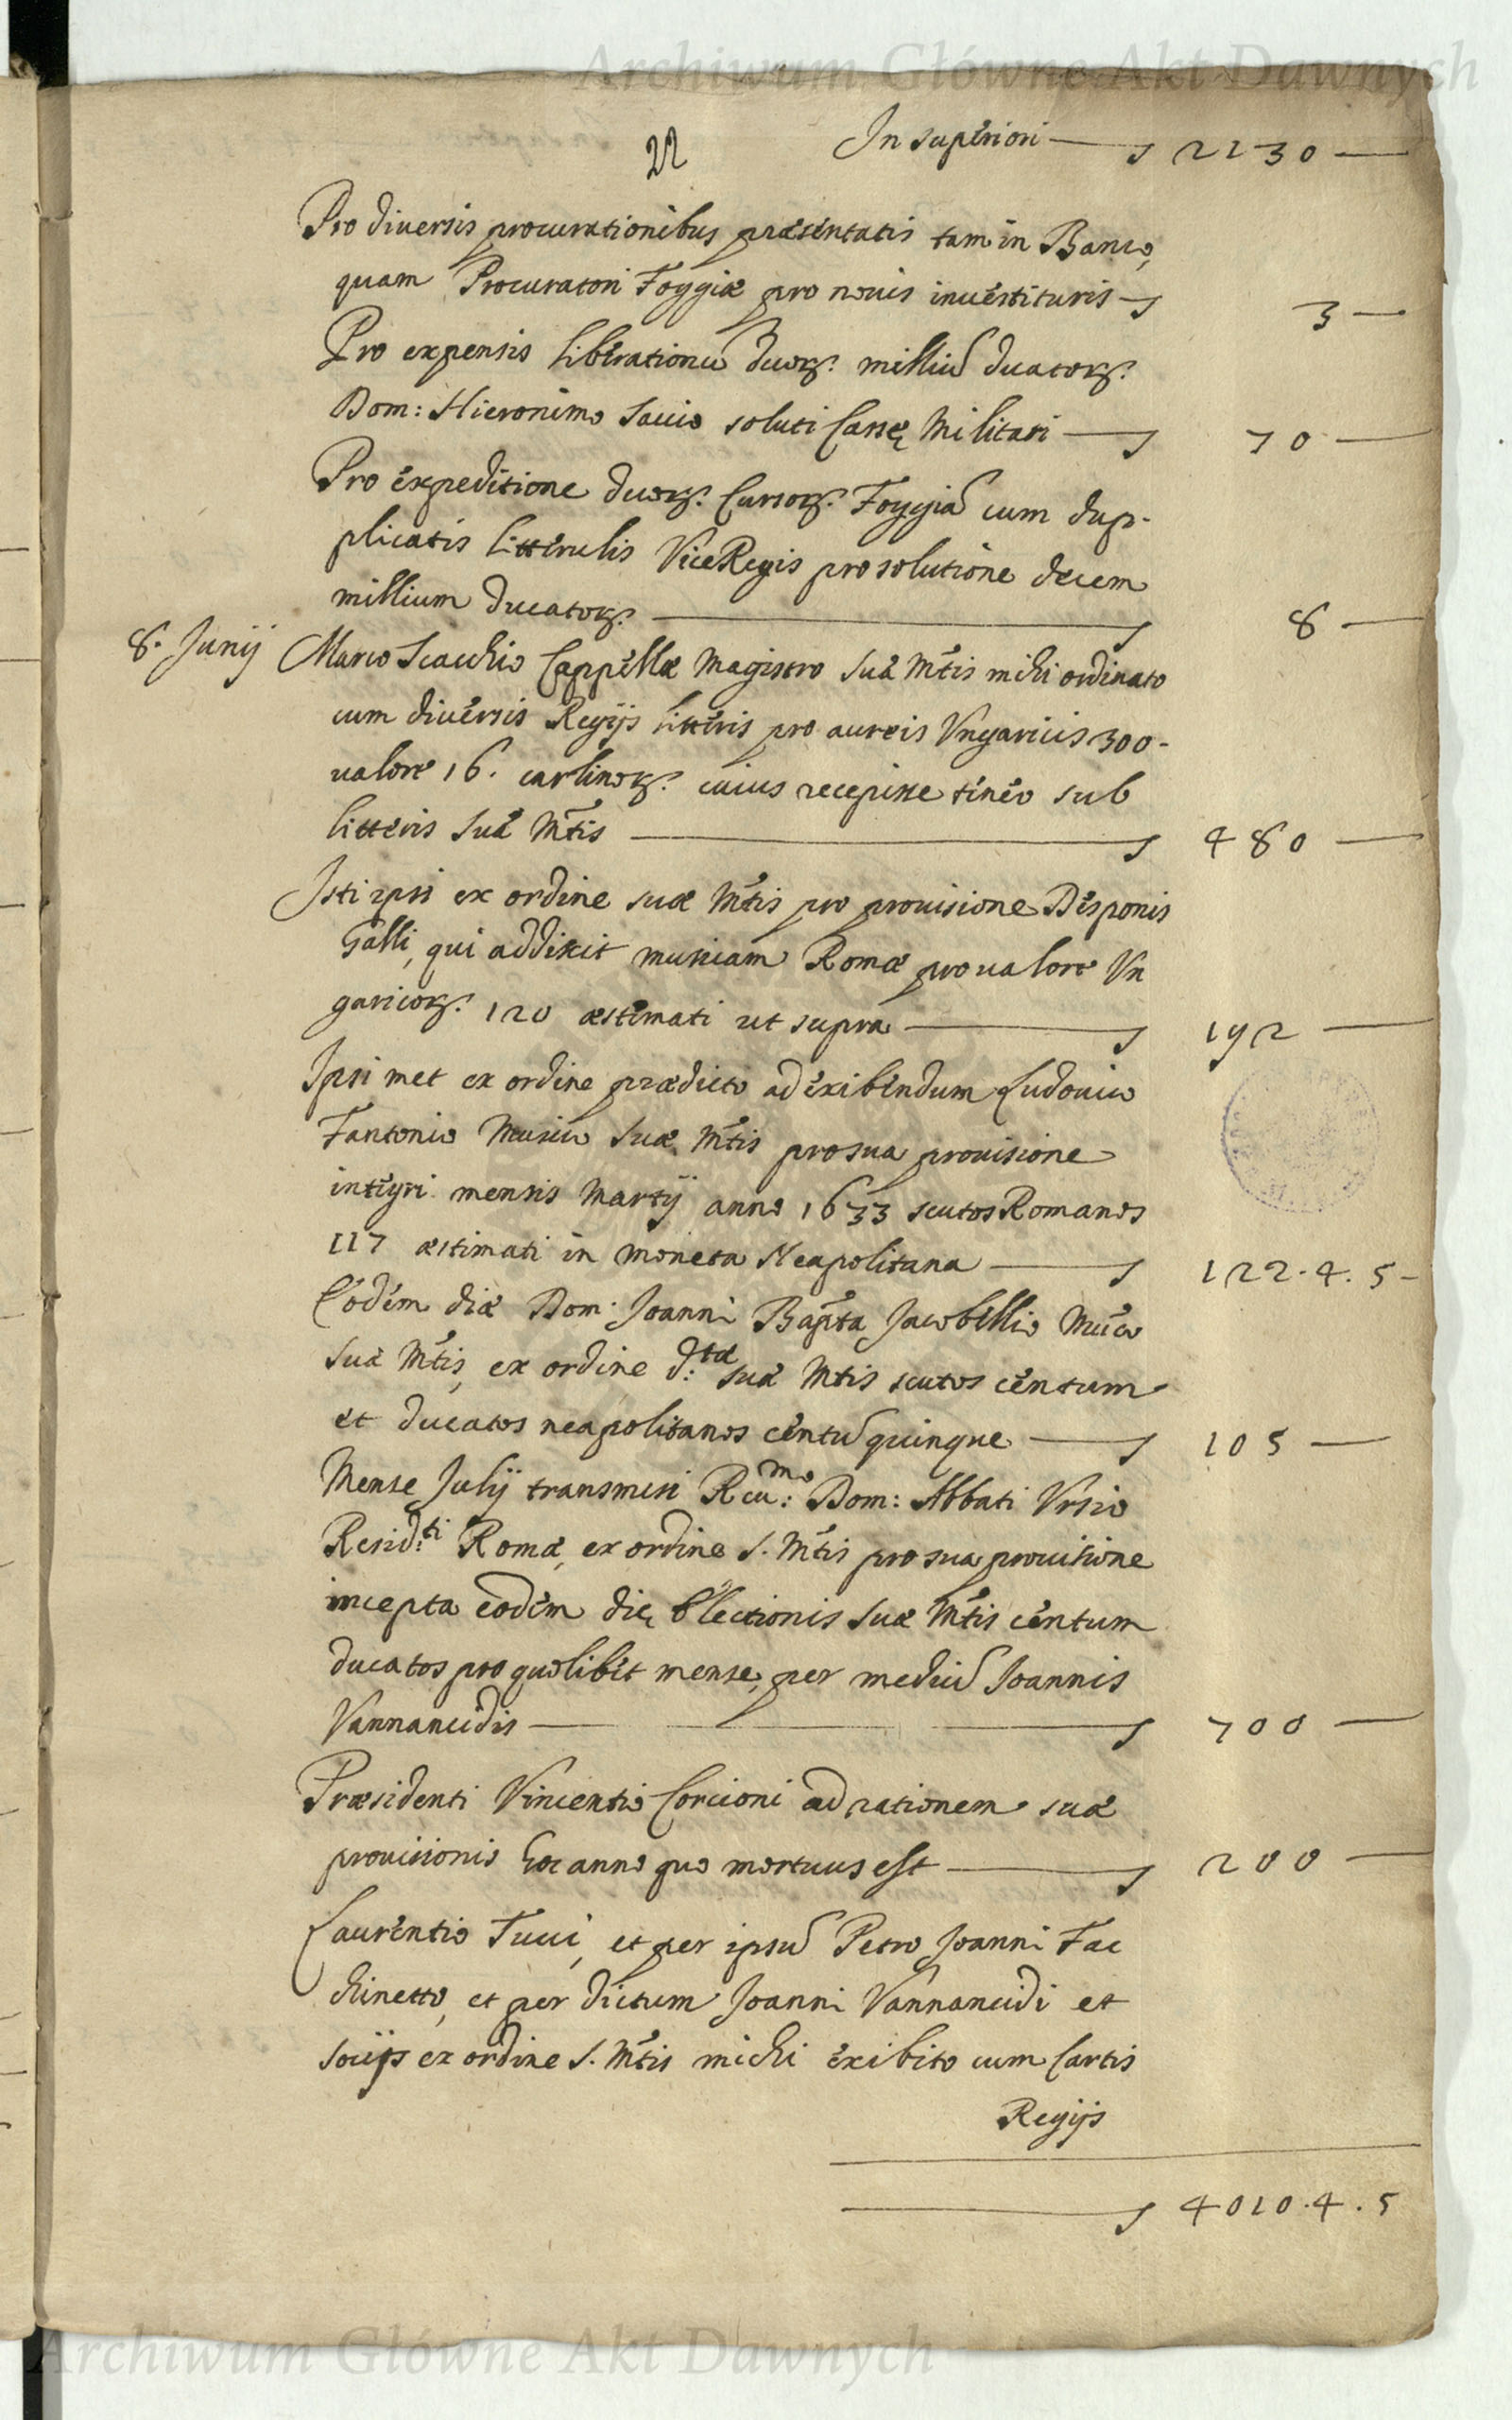 Archiwum Główne Akt Dawnych
22
In superiori — 2130 —
Pro diuersis procurationibus præsentatis tam in Banco,
quam Procuratori Foggiæ pro nouis inuestituris — 3 —
Pro expensis liberationũ duorꝝ. milliũ ducatorꝝ.
Dom: Hieronimo Sauio soluti Cassę Militari — 70 —
Pro expeditione duorꝝ. Cursorꝝ. Foggiã cum dup-
plicatis litterulis ViceRegis pro solutione decem
millium ducatorꝝ. — 8 —
8. Junij Marco Scacchio Cappellæ Magistro Suæ Mtis michi ordinato
cum diuersis Regijs litteris pro aureis Vngaricis 300-
ualore 16. carlinorꝝ. cuius recepisse tineo sub
litteris Suæ Mtis — 480 —
Isti ipsi ex ordine suæ Mtis pro prouisione Desponis
Galli, qui addixit musicam Romæ pro ualore Vn
garicorꝝ. 120 æstimati ut supra — 192 —
Ipsi met ex ordine prædicto ad exibendum Ludouico
Fantonio Musico Suæ Mtis pro sua prouisione
integri mensis Martij anno 1633 scutos Romanos
117 æstimati in moneta Neapolitana — 122.4.5-
Eodem diæ Dom: Joanni Bapta Jacobellio Muco
Suæ Mtis, ex ordine d:tæ suæ Mtis scutos centum
et ducatos neapolitanos centũ quinque — 105 —
Mense Julij transmisi Reu:mo Dom: Abbati Vrsio
Resid:ti Romæ, ex ordine S. Mtis pro sua prouisione
incepta eodem dię Electionis Suæ Mtis centum
ducatos pro quolibet mense, per mediũ Joannis
Vannancidis — 700 —
Præsidenti Vincentio Corcioni ad rationem suæ
prouisionis hoc anno quo mortuus est — 200 —
Laurentio Tucci, et per ipsũ Petro Joanni Fac
chinetto, et per dictum Joanni Vannancidi et
socijs ex ordine S. Mtis michi exibito cum Cartis
Regijs
— 4010.4.5
Archiwum Główne Akt Dawnych